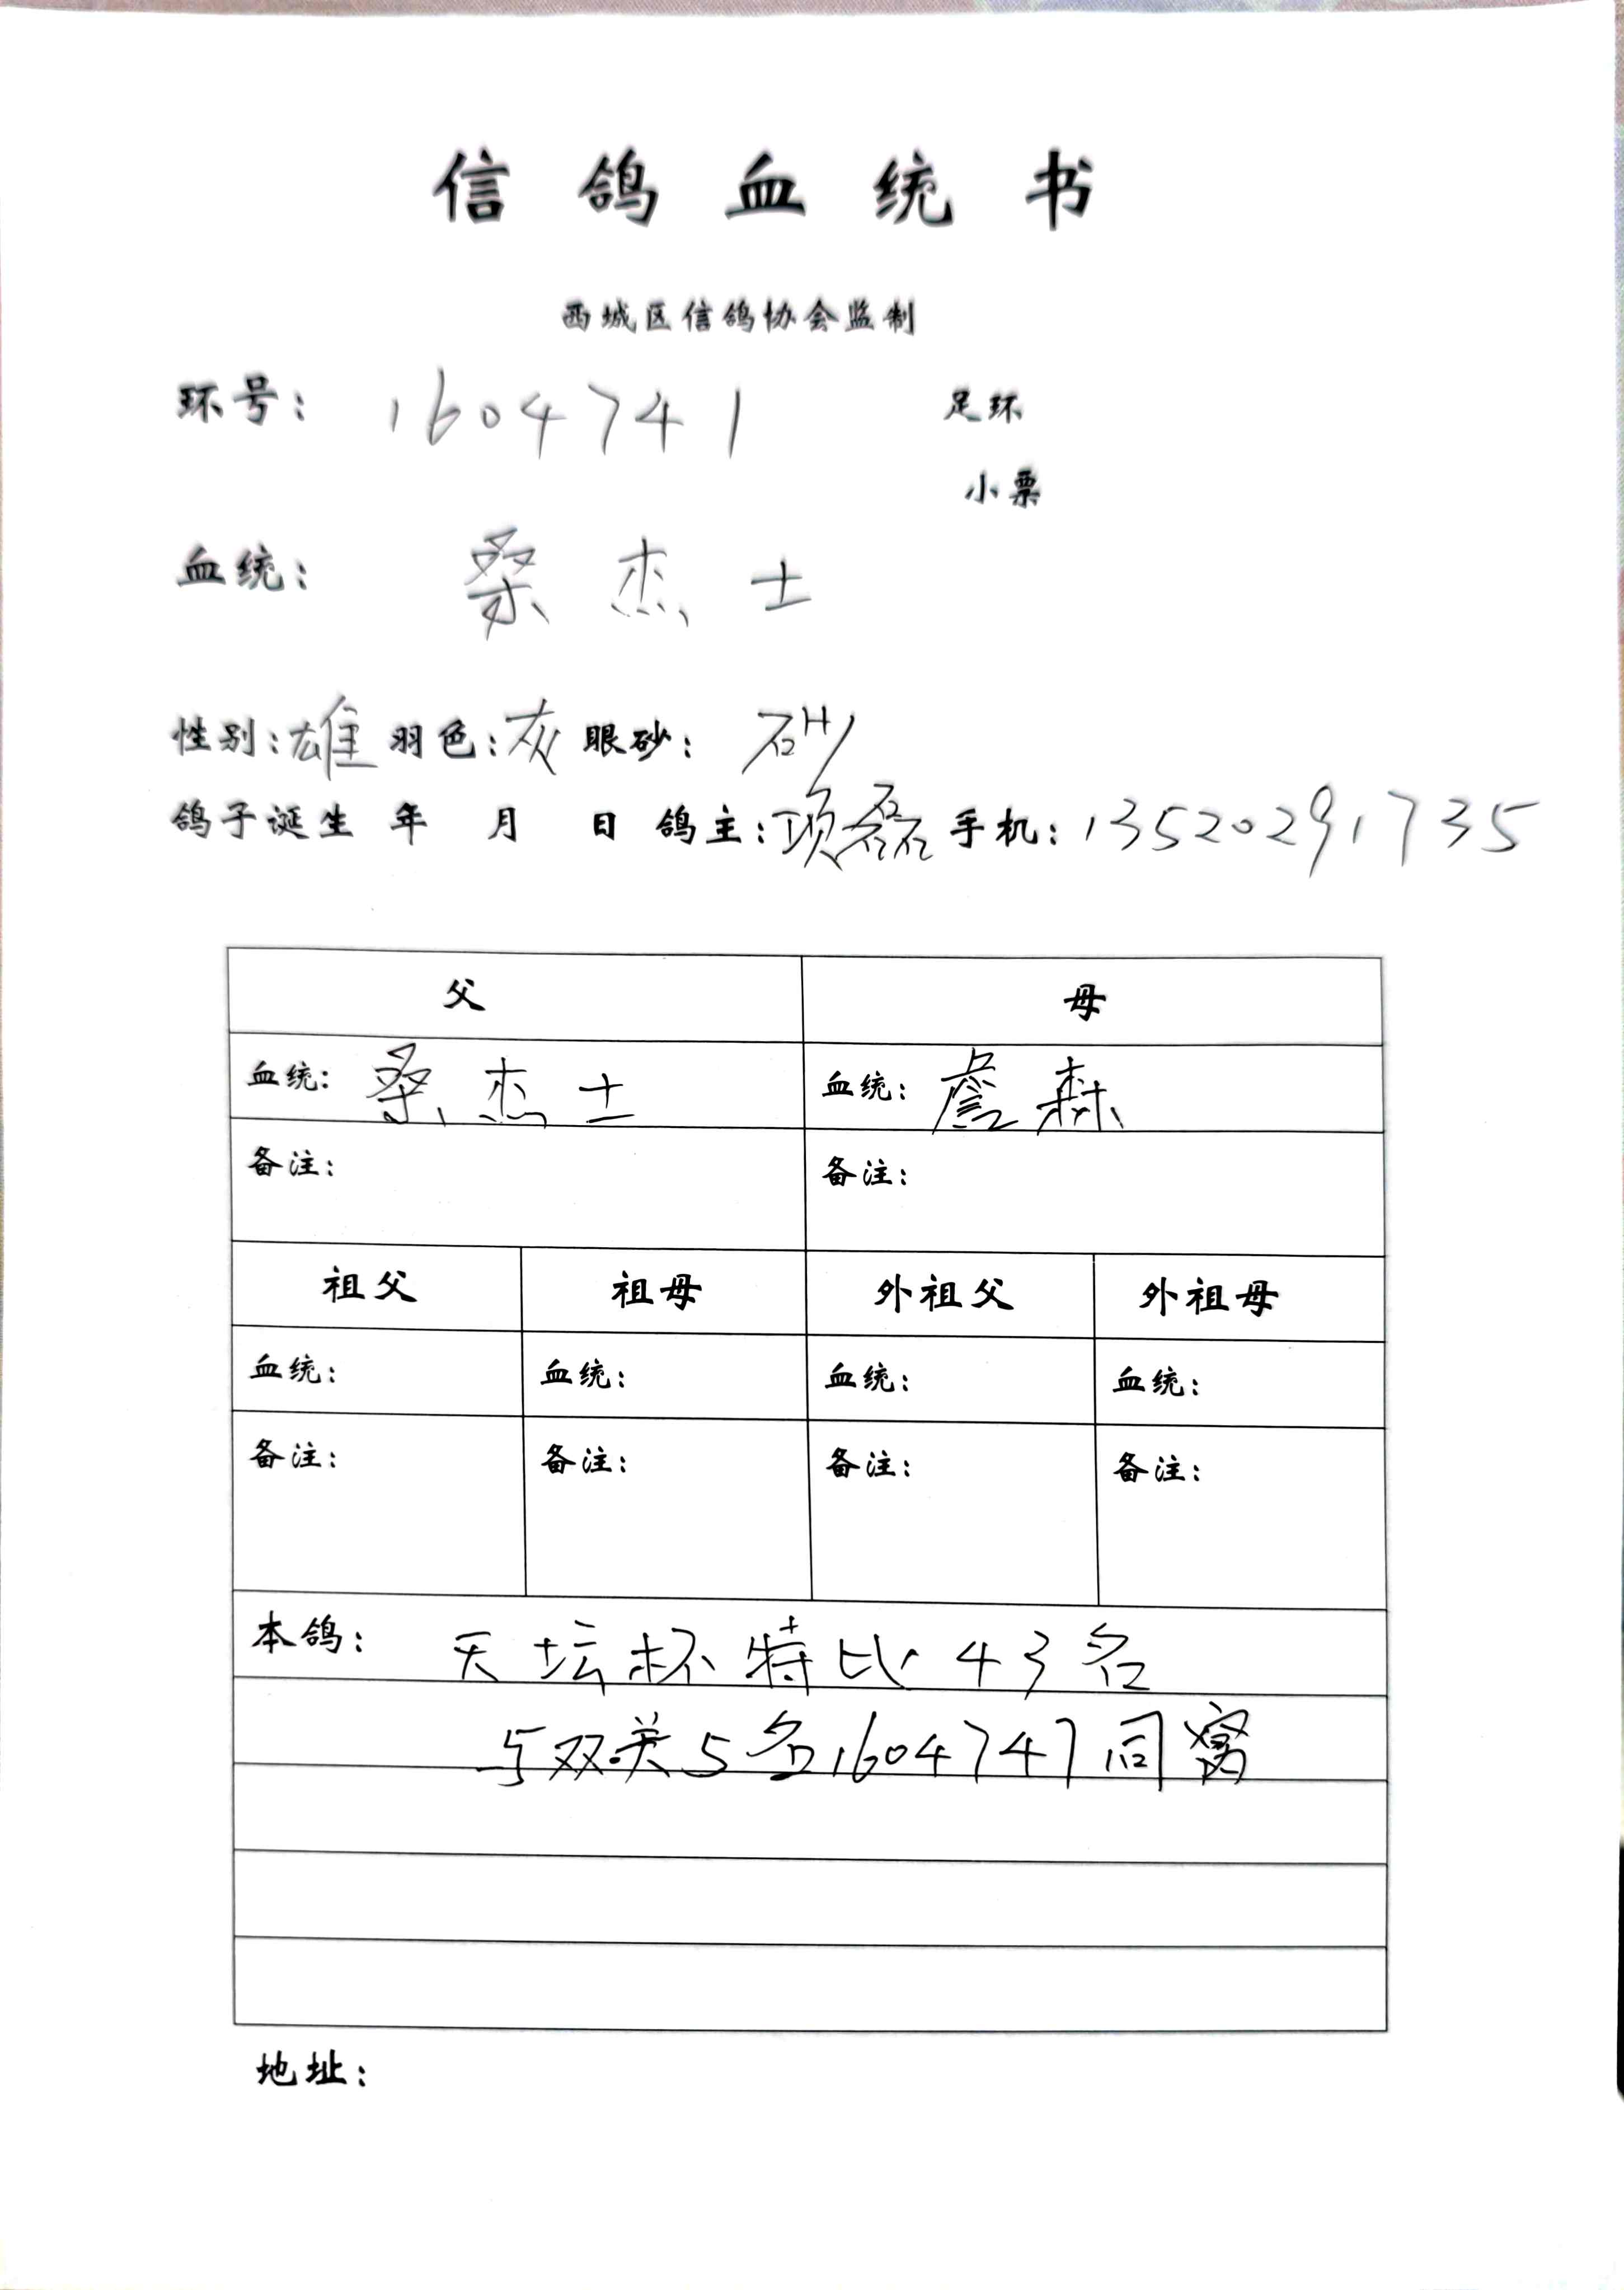 信鸽血统书
西城区信鸽协会监制
环号： 1604741 足环
小票
血统： 桑杰士
性别：雄 羽色：灰 眼砂： 砂
鸽子诞生 年 月 日 鸽主：项磊 手机：13520291735
父 母
血统： 桑杰士 血统： 詹森
备注： 备注：
祖父 祖母 外祖父 外祖母
血统： 血统： 血统： 血统：
备注： 备注： 备注： 备注：
本鸽： 天坛杯特比43名
与双关5名1604747同窝
地址：